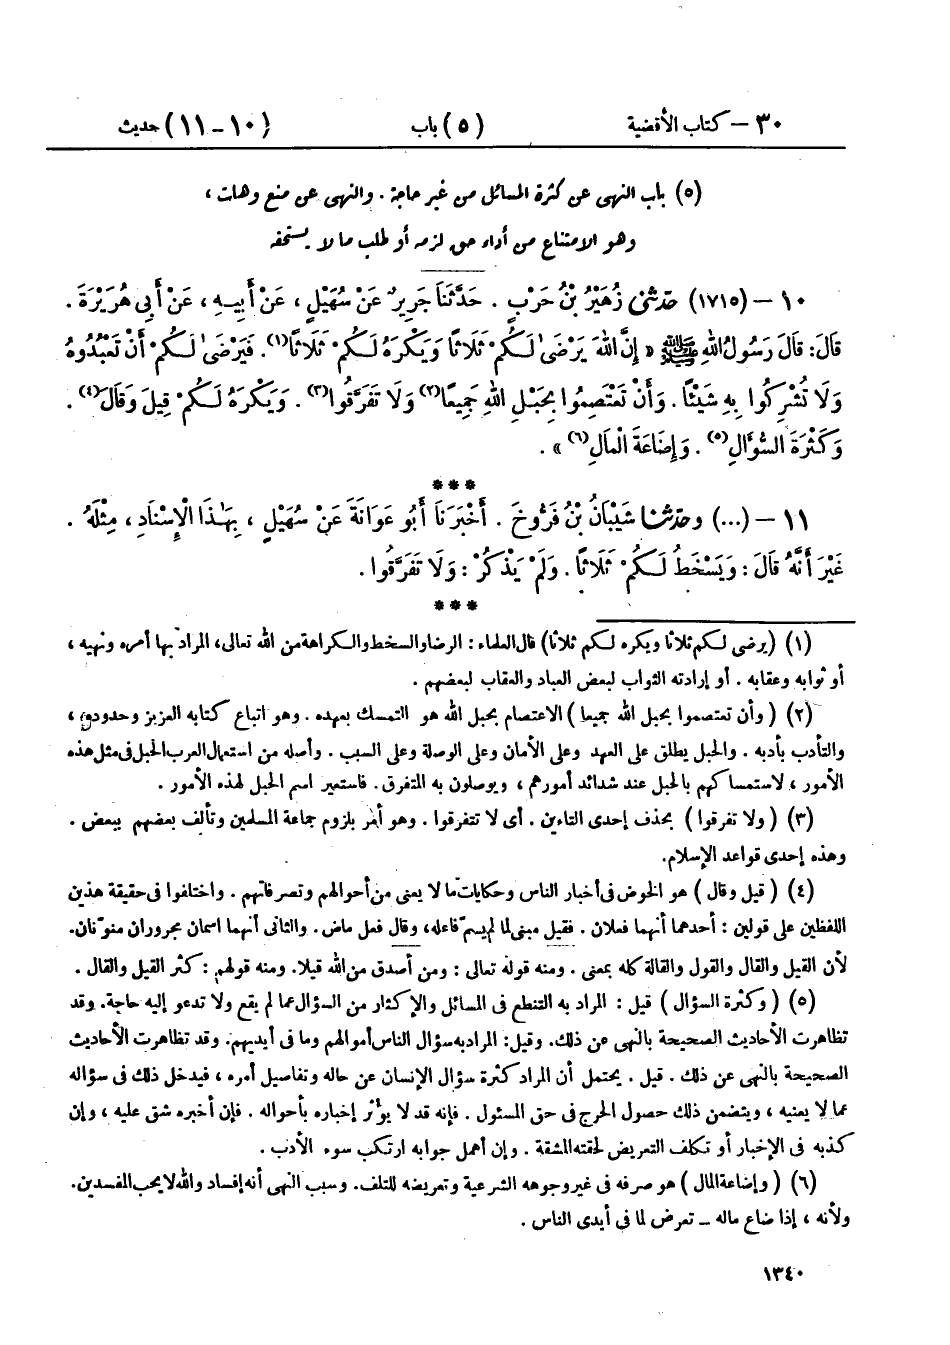 ٣٠ – كتاب الأقضية (٥) باب (١٠ – ١١) حديث
(٥) باب النهى عن كثرة المسائل من غير حاجة . والنهى عن منع وهات ،
وهو الامتناع من أداء حق لزمه أو طلب ما لا يستحقه
١٠ – (١٧١٥) حَدَّثَنِي زُهَيْرُ بْنُ حَرْبٍ . حَدَّثَنَا جَرِيرٌ عَنْ سُهَيْلٍ ، عَنْ أَبِيهِ ، عَنْ أَبِي هُرَيْرَةَ .
قَالَ: قَالَ رَسُولُ اللهِ ﷺ « إِنَّ اللهَ يَرْضَىٰ لَكُمْ ثَلَاثًا وَيَكْرَهُ لَكُمْ ثَلَاثًا(١). فَيَرْضَىٰ لَكُمْ أَنْ تَعْبُدُوهُ
وَلَا تُشْرِكُوا بِهِ شَيْئًا . وَأَنْ تَعْتَصِمُوا بِحَبْلِ اللهِ جَمِيعًا(٢) وَلَا تَفَرَّقُوا(٣) . وَيَكْرَهُ لَكُمْ قِيلَ وَقَالَ(٤) .
وَكَثْرَةَ السُّؤَالِ(٥) . وَإِضَاعَةَ الْمَالِ(٦) » .
***
١١ – (...) وحَدَّثَنَا شَيْبَانُ بْنُ فَرُّوخَ . أَخْبَرَنَا أَبُو عَوَانَةَ عَنْ سُهَيْلٍ ، بِهَٰذَا الْإِسْنَادِ ، مِثْلَهُ .
غَيْرَ أَنَّهُ قَالَ : وَيَسْخَطُ لَكُمْ ثَلَاثًا . وَلَمْ يَذْكُرْ : وَلَا تَفَرَّقُوا .
***
(١) (يرضى لكم ثلاثا ويكره لكم ثلاثا) قال العلماء : الرضا والسخط والكراهة من الله تعالى، المراد بها أمره ونهيه ،
أو ثوابه وعقابه . أو إرادته الثواب لبعض العباد والعقاب لبعضهم .
(٢) (وأن تعتصموا بحبل الله جميعا) الاعتصام بحبل الله هو التمسك بعهده . وهو اتباع كتابه العزيز وحدوده ،
والتأدب بأدبه . والحبل يطلق على العهد وعلى الأمان وعلى الوصلة وعلى السبب . وأصله من استعمال العرب الحبل فى مثل هذه
الأمور ، لاستمساكهم بالحبل عند شدائد أمورهم ، ويوصلون به المتفرق. فاستعير اسم الحبل لهذه الأمور .
(٣) (ولا تفرقوا) بحذف إحدى التاءين . أى لا تتفرقوا . وهو أمر بلزوم جماعة المسلمين وتألف بعضهم ببعض .
وهذه إحدى قواعد الإسلام.
(٤) (قيل وقال) هو الخوض فى أخبار الناس وحكايات ما لا يعنى من أحوالهم وتصرفاتهم . واختلفوا فى حقيقة هذين
اللفظين على قولين : أحدهما أنهما فعلان . فقيل مبنى لما لم يسمّ فاعله، وقال فعل ماض . والثانى أنهما اسمان مجروران منوّنان.
لأن القيل والقال والقول والقالة كله بمعنى . ومنه قوله تعالى : ومن أصدق من الله قيلا. ومنه قولهم : كثر القيل والقال .
(٥) (وكثرة السؤال) قيل : المراد به التنطع فى المسائل والإكثار من السؤال عما لم يقع ولا تدعو إليه حاجة. وقد
تظاهرت الأحاديث الصحيحة بالنهى عن ذلك. وقيل: المراد به سؤال الناس أموالهم وما فى أيديهم. وقد تظاهرت الأحاديث
الصحيحة بالنهى عن ذلك . قيل . يحتمل أن المراد كثرة سؤال الإنسان عن حاله وتفاصيل أمره ، فيدخل ذلك فى سؤاله
عما لا يعنيه ، ويتضمن ذلك حصول الحرج فى حق المسئول . فإنه قد لا يؤثر إخباره بأحواله . فإن أخبره شق عليه ، وإن
كذبه فى الإخبار أو تكلف التعريض لحقته المشقة . وإن أهمل جوابه ارتكب سوء الأدب .
(٦) (وإضاعة المال) هو صرفه فى غير وجوهه الشرعية وتعريضه للتلف. وسبب النهى أنه إفساد والله لا يحب المفسدين.
ولأنه ، إذا ضاع ماله – تعرض لما فى أيدى الناس .
١٣٤٠